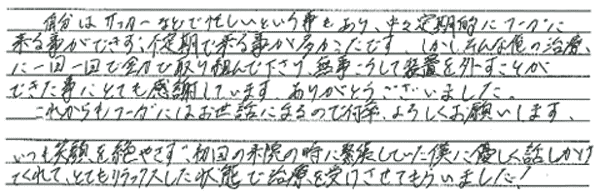 自分はサッカーなどで忙しいという事もあり、中々定期的にフーガに
来る事ができず、不定期で来る事が多かったです。しかしそんな俺の治療
に一回一回で全力で取り組んで下さり、無事こうして装置を外すことが
できた事にとても感謝しています。ありがとうございました。
これからもフーガにはお世話になるので何卒、よろしくお願いします。
いつも笑顔を絶やさず、初回の来院の時に緊張していた僕に優しく話しかけ
てくれて、とてもリラックスした状態で治療を受けさせてもらいました!